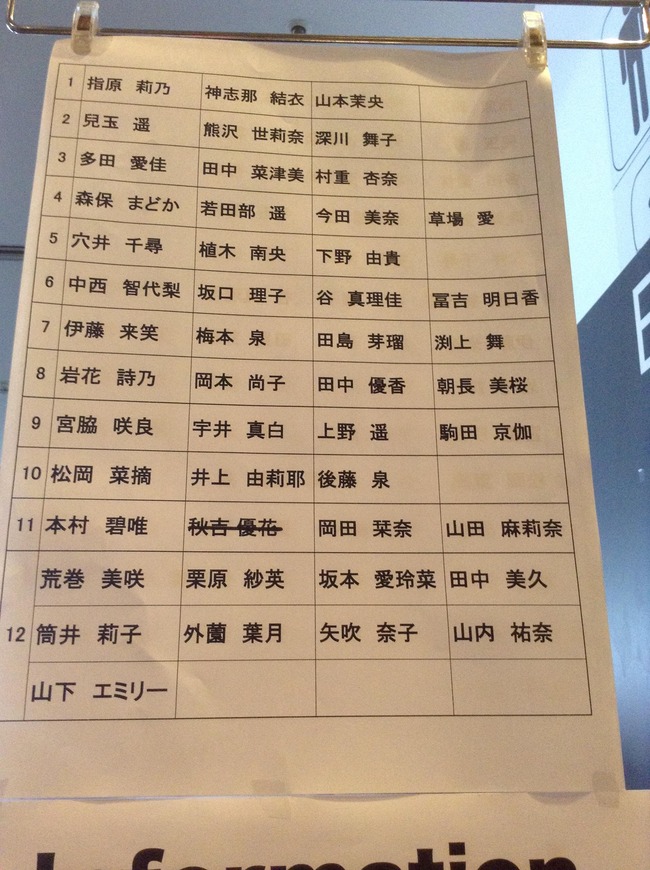 1 指原 莉乃 神志那 結衣 山本茉央
2 兒玉 遥 熊沢 世莉奈 深川 舞子
3 多田 愛佳 田中 菜津美 村重 杏奈
4 森保 まどか 若田部 遥 今田 美奈 草場 愛
5 穴井 千尋 植木 南央 下野 由貴
6 中西 智代梨 坂口 理子 谷 真理佳 冨吉 明日香
7 伊藤 来笑 梅本 泉 田島 芽瑠 渕上 舞
8 岩花 詩乃 岡本 尚子 田中 優香 朝長 美桜
9 宮脇 咲良 宇井 真白 上野 遥 駒田 京伽
10 松岡 菜摘 井上 由莉耶 後藤 泉
11 本村 碧唯 秋吉 優花 岡田 栞奈 山田 麻莉奈
荒巻 美咲 栗原 紗英 坂本 愛玲菜 田中 美久
12 筒井 莉子 外薗 葉月 矢吹 奈子 山内 祐奈
山下 エミリー
Information